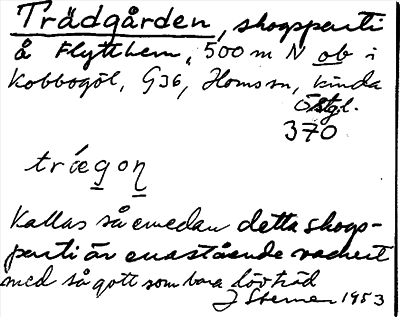 Trädgården, skogsparti
å Flytthem, 500 m N ob i
Kobbogöl, G36, Horns sn, Kinda
Östgl.
370
trǽgo̲n̲
Kallas så emedan detta skogs-
parti är enastående vackert
med så gott som bara lövträd
J Sterner 1953